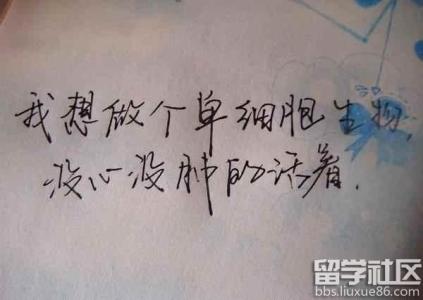 我想做个单细胞生物,
没心没肺的活着.
留学社区
bbs.liuxue86.com